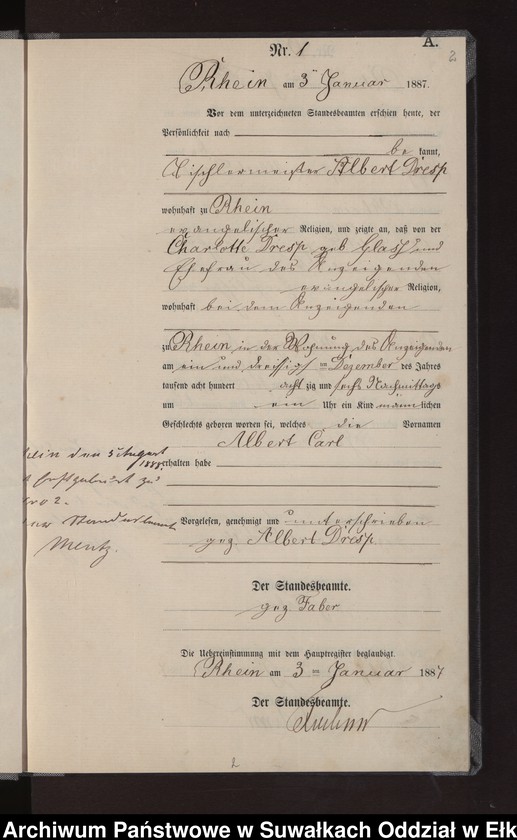 A.
2
Nr. 1
Rhein am 3ten Januar 1887.
Vor dem unterzeichneten Standesbeamten erschien heute, der
Persönlichkeit nach
be kannt,
Tischlermeister Albert Dresp
wohnhaft zu Rhein
evangelischer Religion, und zeigte an, daß von der
Charlotte Dresp geb Glass
Ehefrau des Anzeigenden
evangelischer Religion,
wohnhaft bei dem Anzeigenden
zu Rhein in der Wohnung des Anzeigenden
am ein und dreissigs ten Dezember des Jahres
tausend acht hundert acht zig und sechs Nachmittags
um ein Uhr ein Kind männ lichen
Geschlechts geboren worden sei, welches die Vornamen
Albert Carl
erhalten habe
den 5 August
zu
2.
Mentz.
Vorgelesen, genehmigt und unterschrieben
gez Albert Dresp
Der Standesbeamte.
gez Faber
Die Uebereinstimmung mit dem Hauptregister beglaubigt.
Rhein am 3ten Januar 1887
Der Standesbeamte.
2
Archiwum Państwowe w Suwałkach Oddział w Ełk